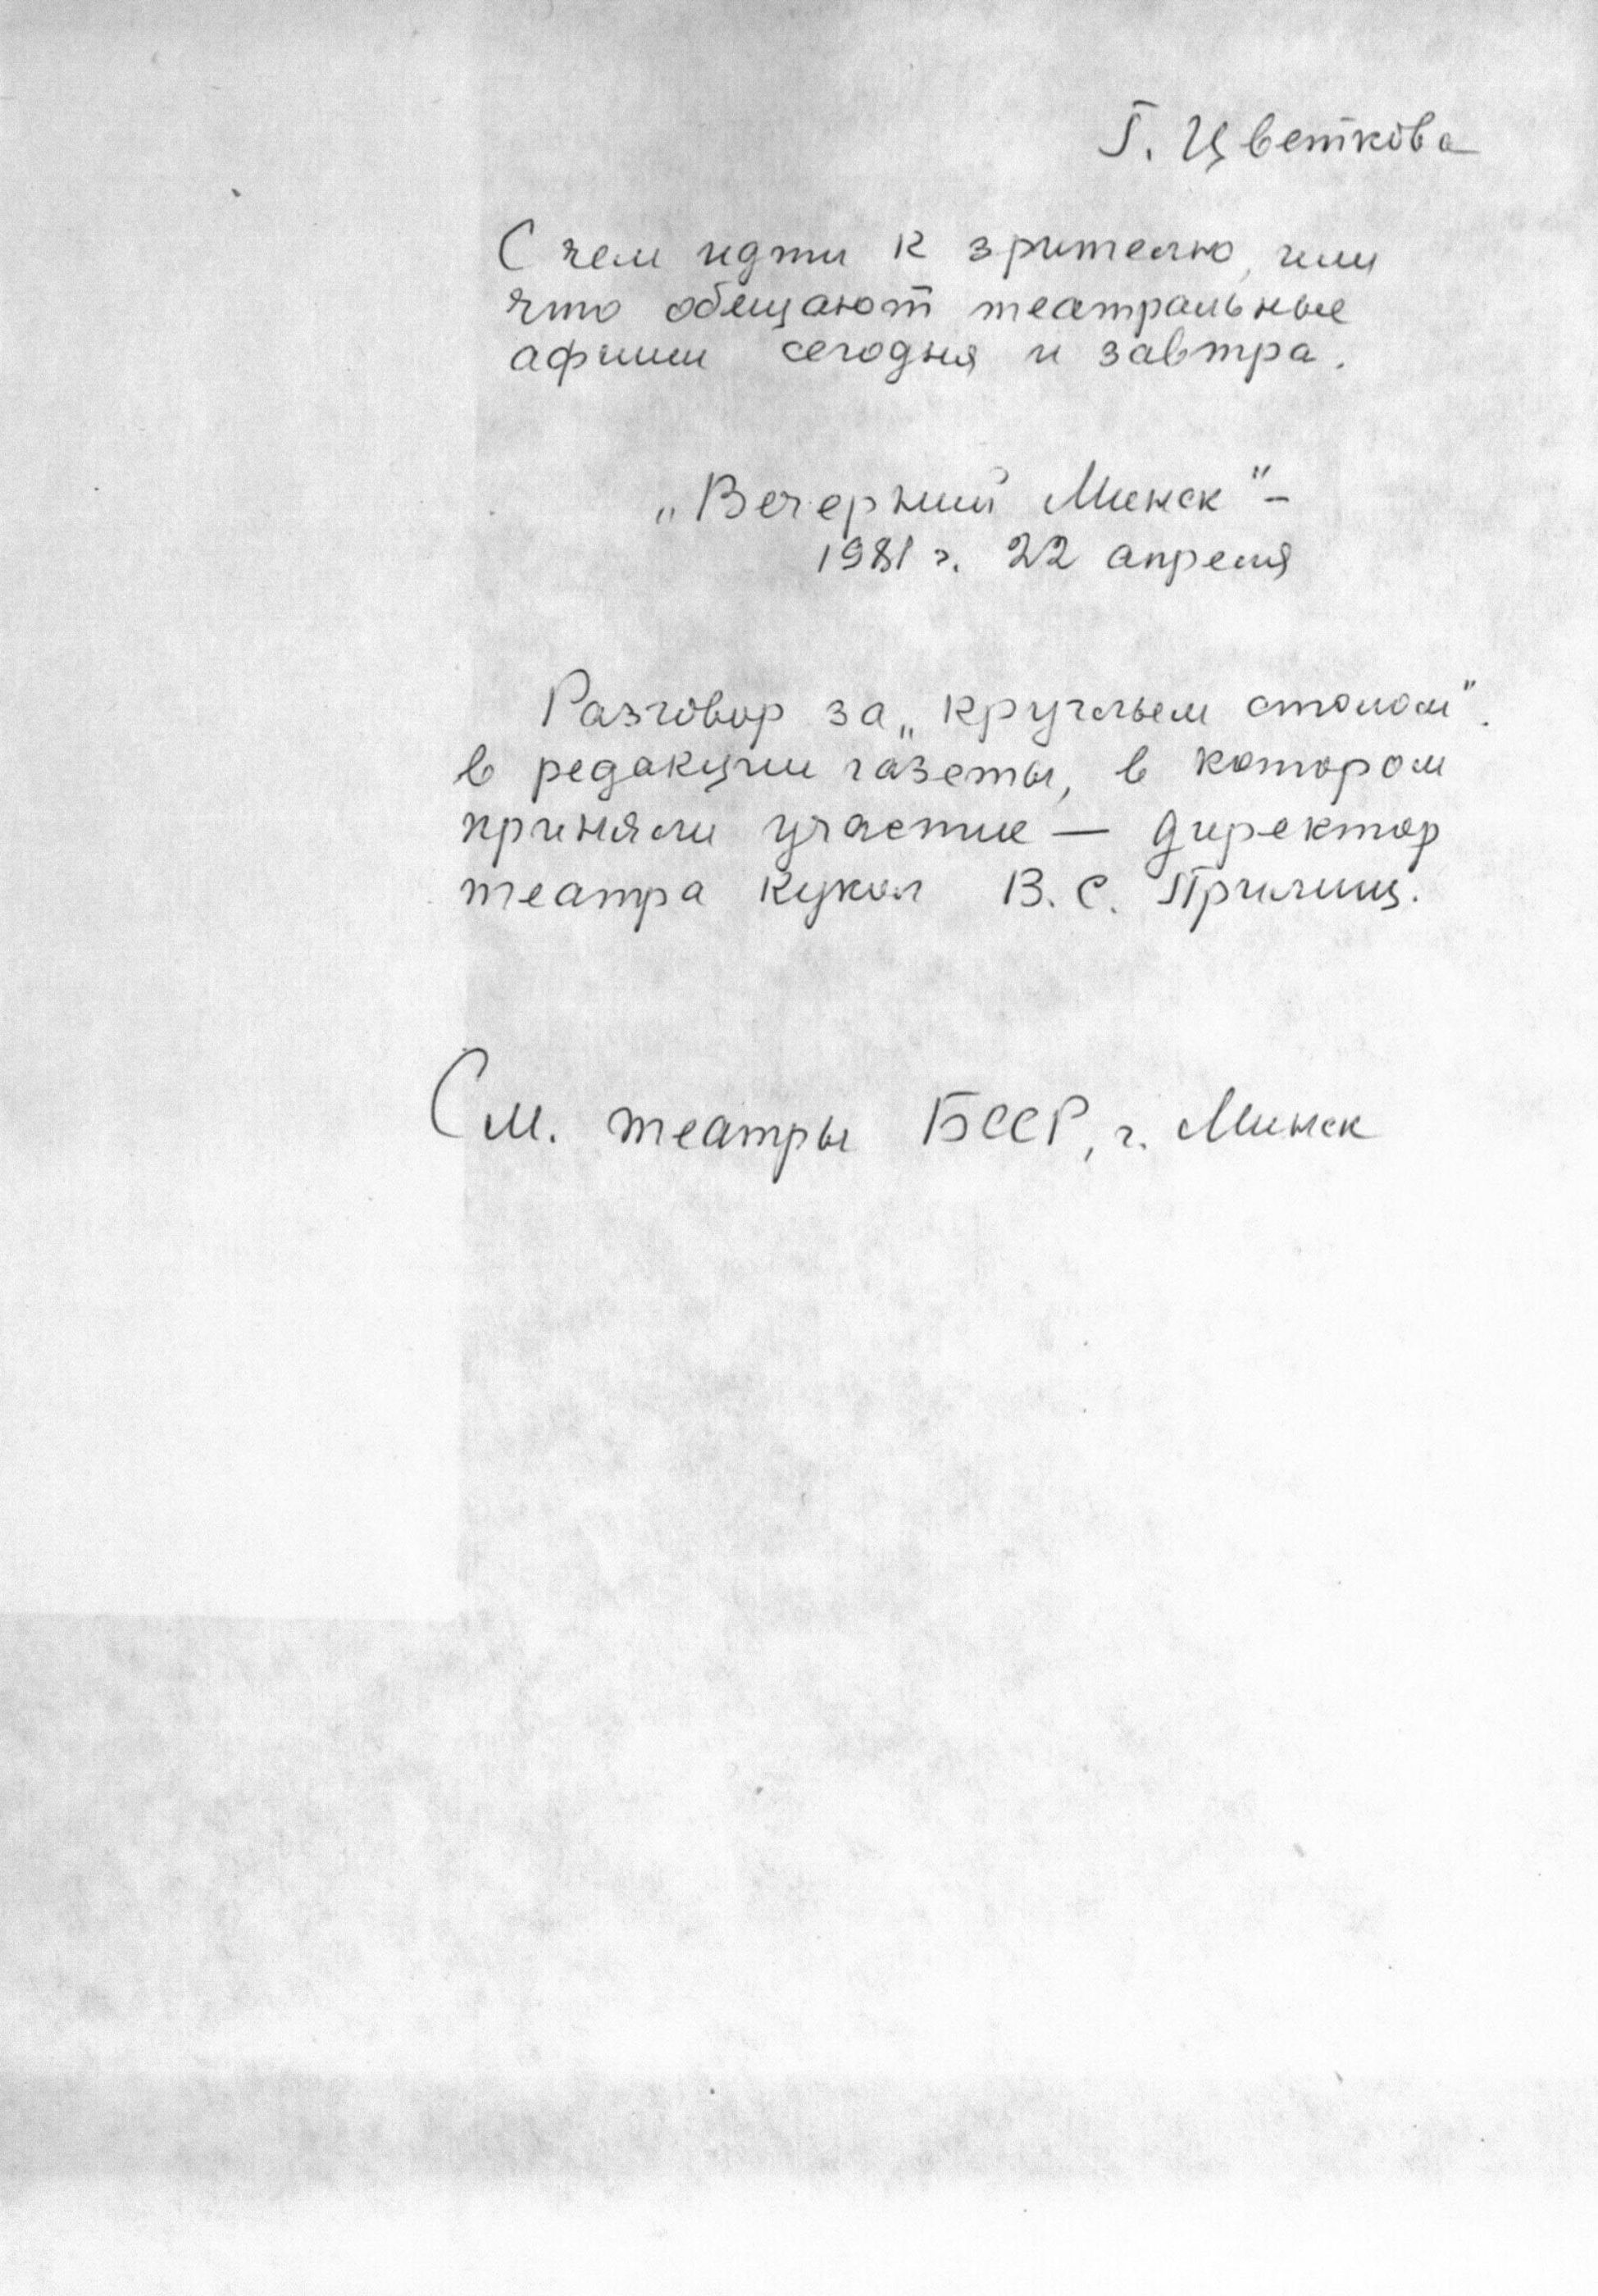 Г. Цветкова
С чем идти к зрителю, или
что обещают театральные
афиши сегодня и завтра.
„Вечерний Минск" –
1981 г. 22 апреля
Разговор за „круглым столом".
в редакции газеты, в котором
приняли участие — директор
театра кукол В. С. Прилищ.
См. театры БССР, г. Минск